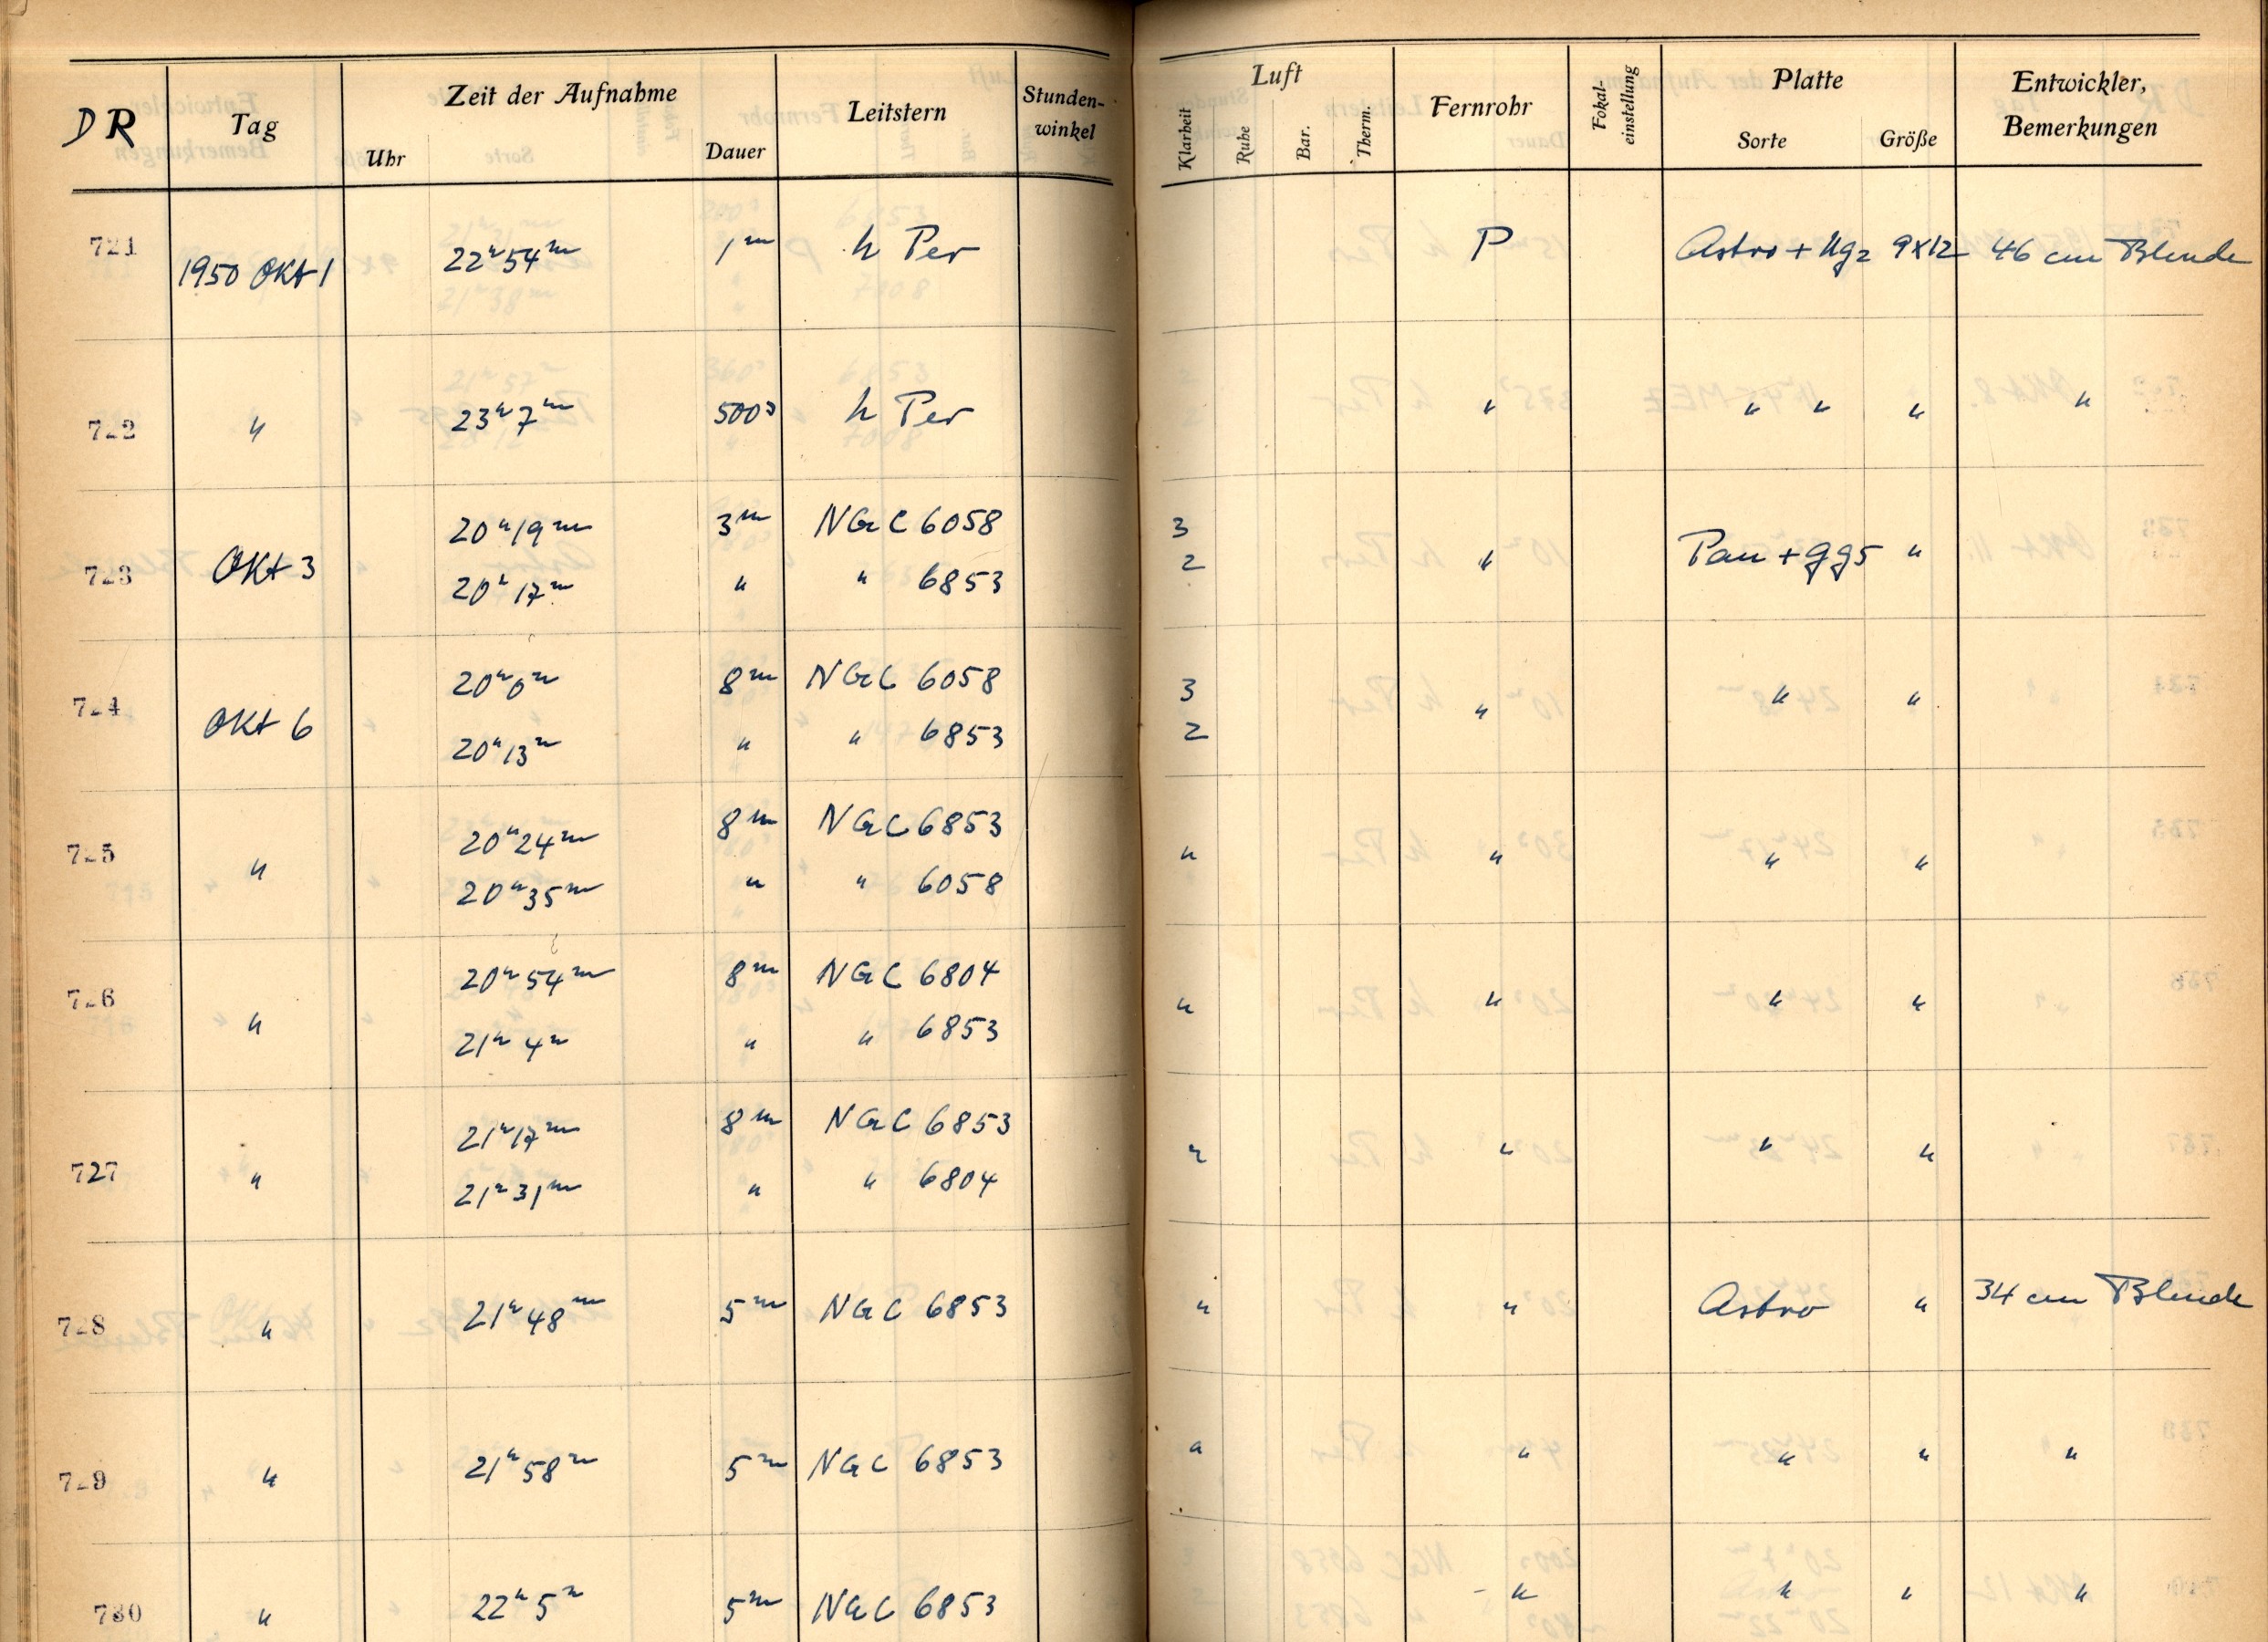 DR Tag Zeit der Aufnahme Uhr Dauer Leitstern Stunden-winkel Luft Klarheit Ruhe Bar. Therm. Fernrohr Fokal-einstellung Platte Sorte Größe Entwickler, Bemerkungen
721 1950 Okt 1 22h 54m 1m h Per P Astro + Ug2 9x12 46 cm Blende
722 " 23h 7m 500s h Per " " " " "
723 Okt 3 20h 19m 3m NGC 6058 3 " Pan + gg5 "
20h 17m " " 6853 2
724 Okt 6 20h 0m 8m NGC 6058 3 " " "
20h 13m " " 6853 2
725 " 20h 24m 8m NGC 6853 " " " "
20h 35m " " 6058
726 " 20h 54m 8m NGC 6804 " " " "
21h 4m " " 6853
727 " 21h 17m 8m NGC 6853 " " " "
21h 31m " " 6804
728 " 21h 48m 5m NGC 6853 " " Astro " 34 cm Blende
729 " 21h 58m 5m NGC 6853 " " " " "
730 " 22h 5m 5m NGC 6853 " " " "